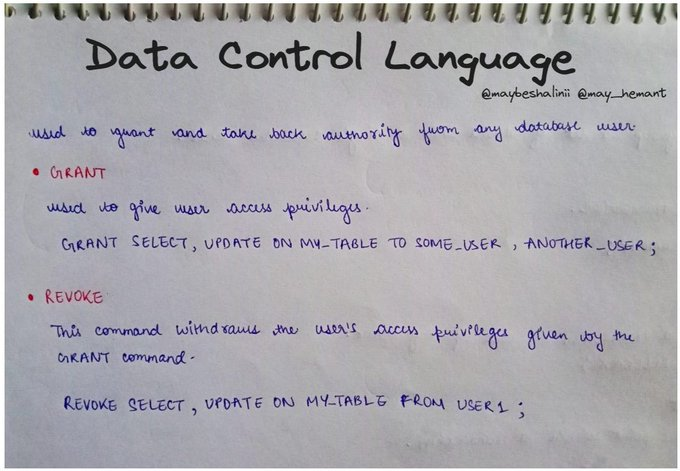 Data Control Language
@maybeshalinii @may_hemant
used to grant and take back authority from any database user.
• GRANT
used to give user access privileges.
GRANT SELECT, UPDATE ON MY_TABLE TO SOME_USER, ANOTHER_USER;
• REVOKE
This command withdraws the user's access privileges given by the
GRANT command.
REVOKE SELECT, UPDATE ON MY_TABLE FROM USER1;